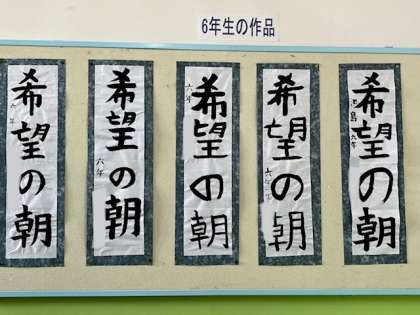 6年生の作品
希望の朝
六年
希望の朝
六年
希望の朝
六年
希望の朝
六年
希望の朝
六年